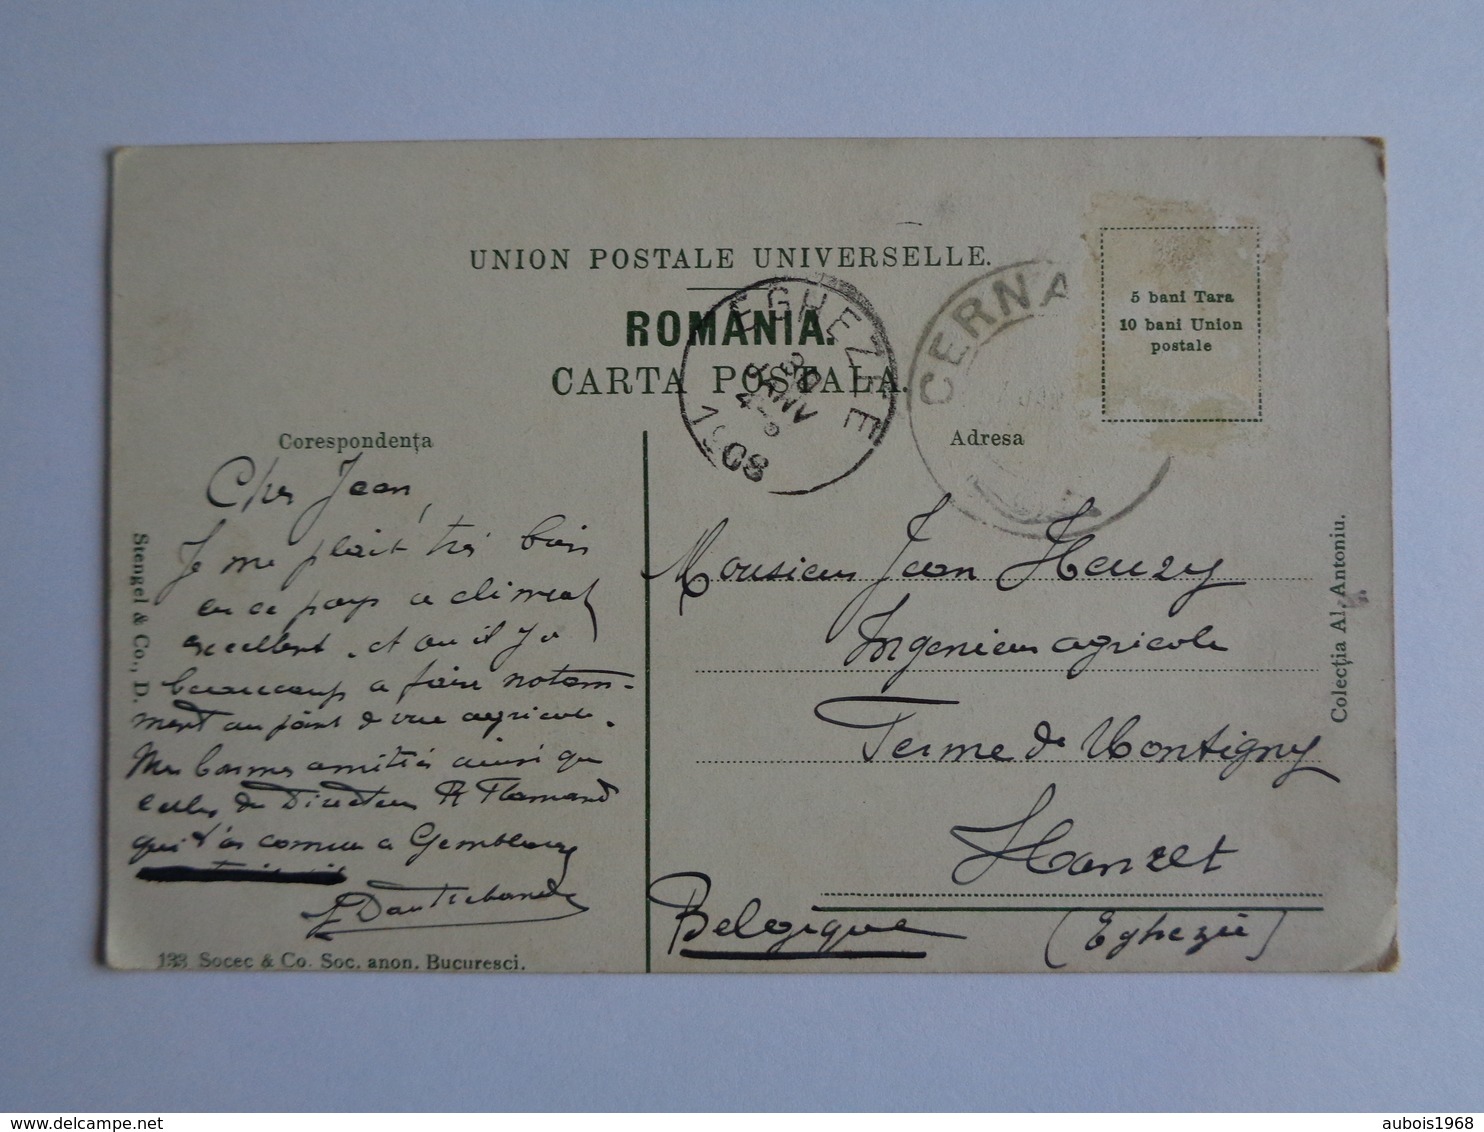 UNION POSTALE UNIVERSELLE.
ROMANIA.
CARTA POSTALA.
EGHEZEE
30
JANV
1908
CERNA
5 bani Tara
10 bani Union
postale
Corespondența
Adresa
Cher Jean,
Je me plait très bien
en ce pays a climat
excellent. et ou il y a
beaucoup a faire notam-
ment au point de vue agricole.
Mes bonnes amitiés ainsi que
celles du Directeur R Flamand
qui t'as connu a Gembloux
Monsieur Jean Heuzy
Ingenieur agricole
Ferme de Montigny
Hanret
Belgique (Eghezée)
Stengel & Co., D.
Colecția Al. Antoniu.
133 Socec & Co. Soc. anon. Bucuresci.
delcampe.net
aubois1968